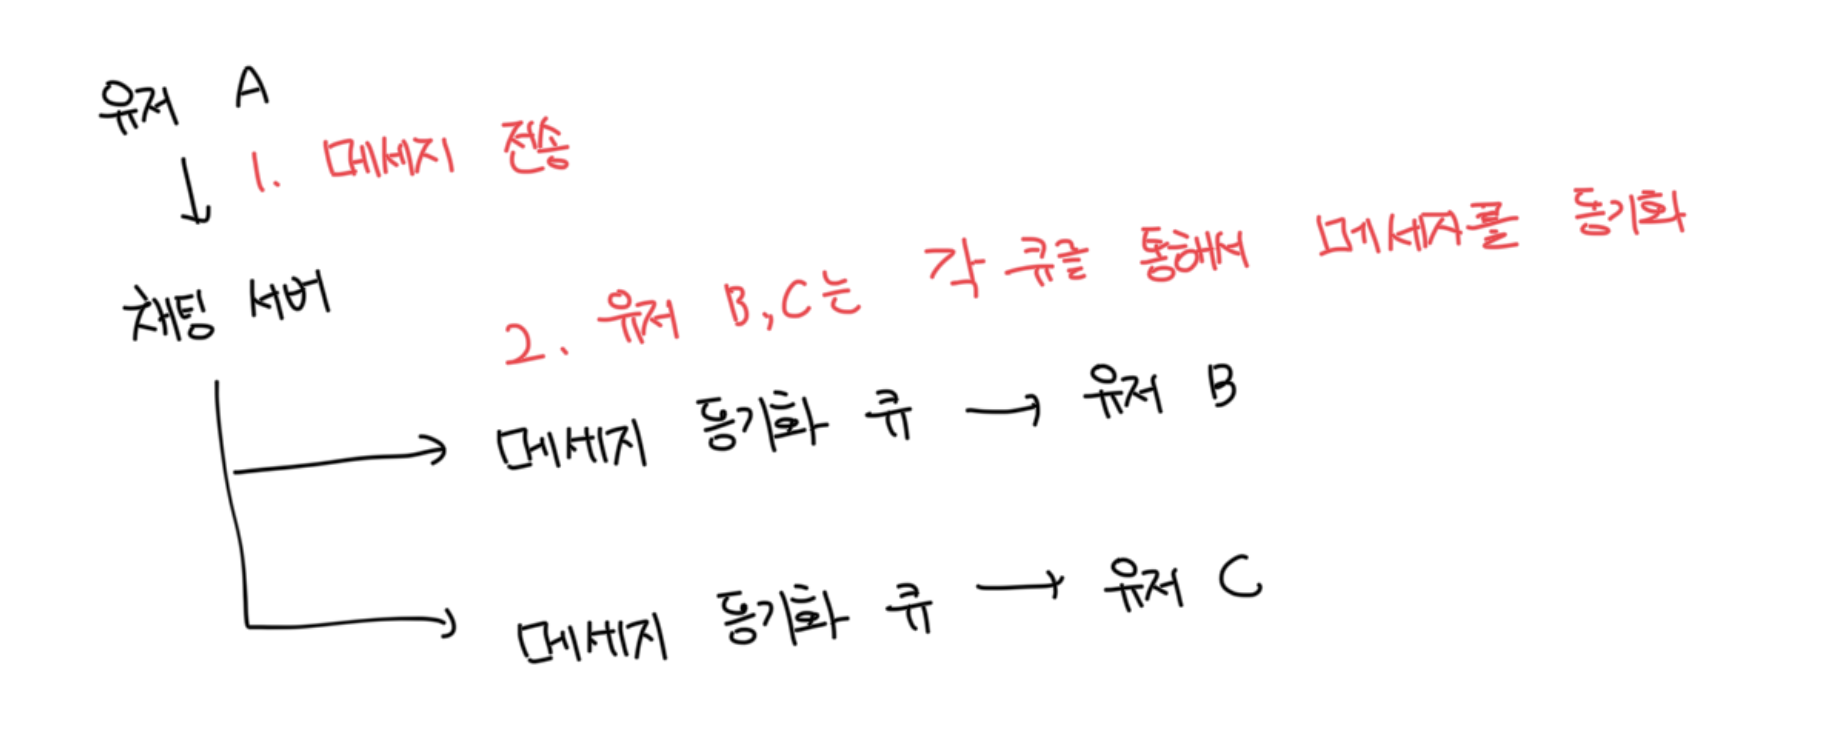 유저 A
1. 메세지 전송
채팅 서버
2. 유저 B,C는 각 큐를 통해서 메세지를 동기화
메세지 동기화 큐 → 유저 B
메세지 동기화 큐 → 유저 C